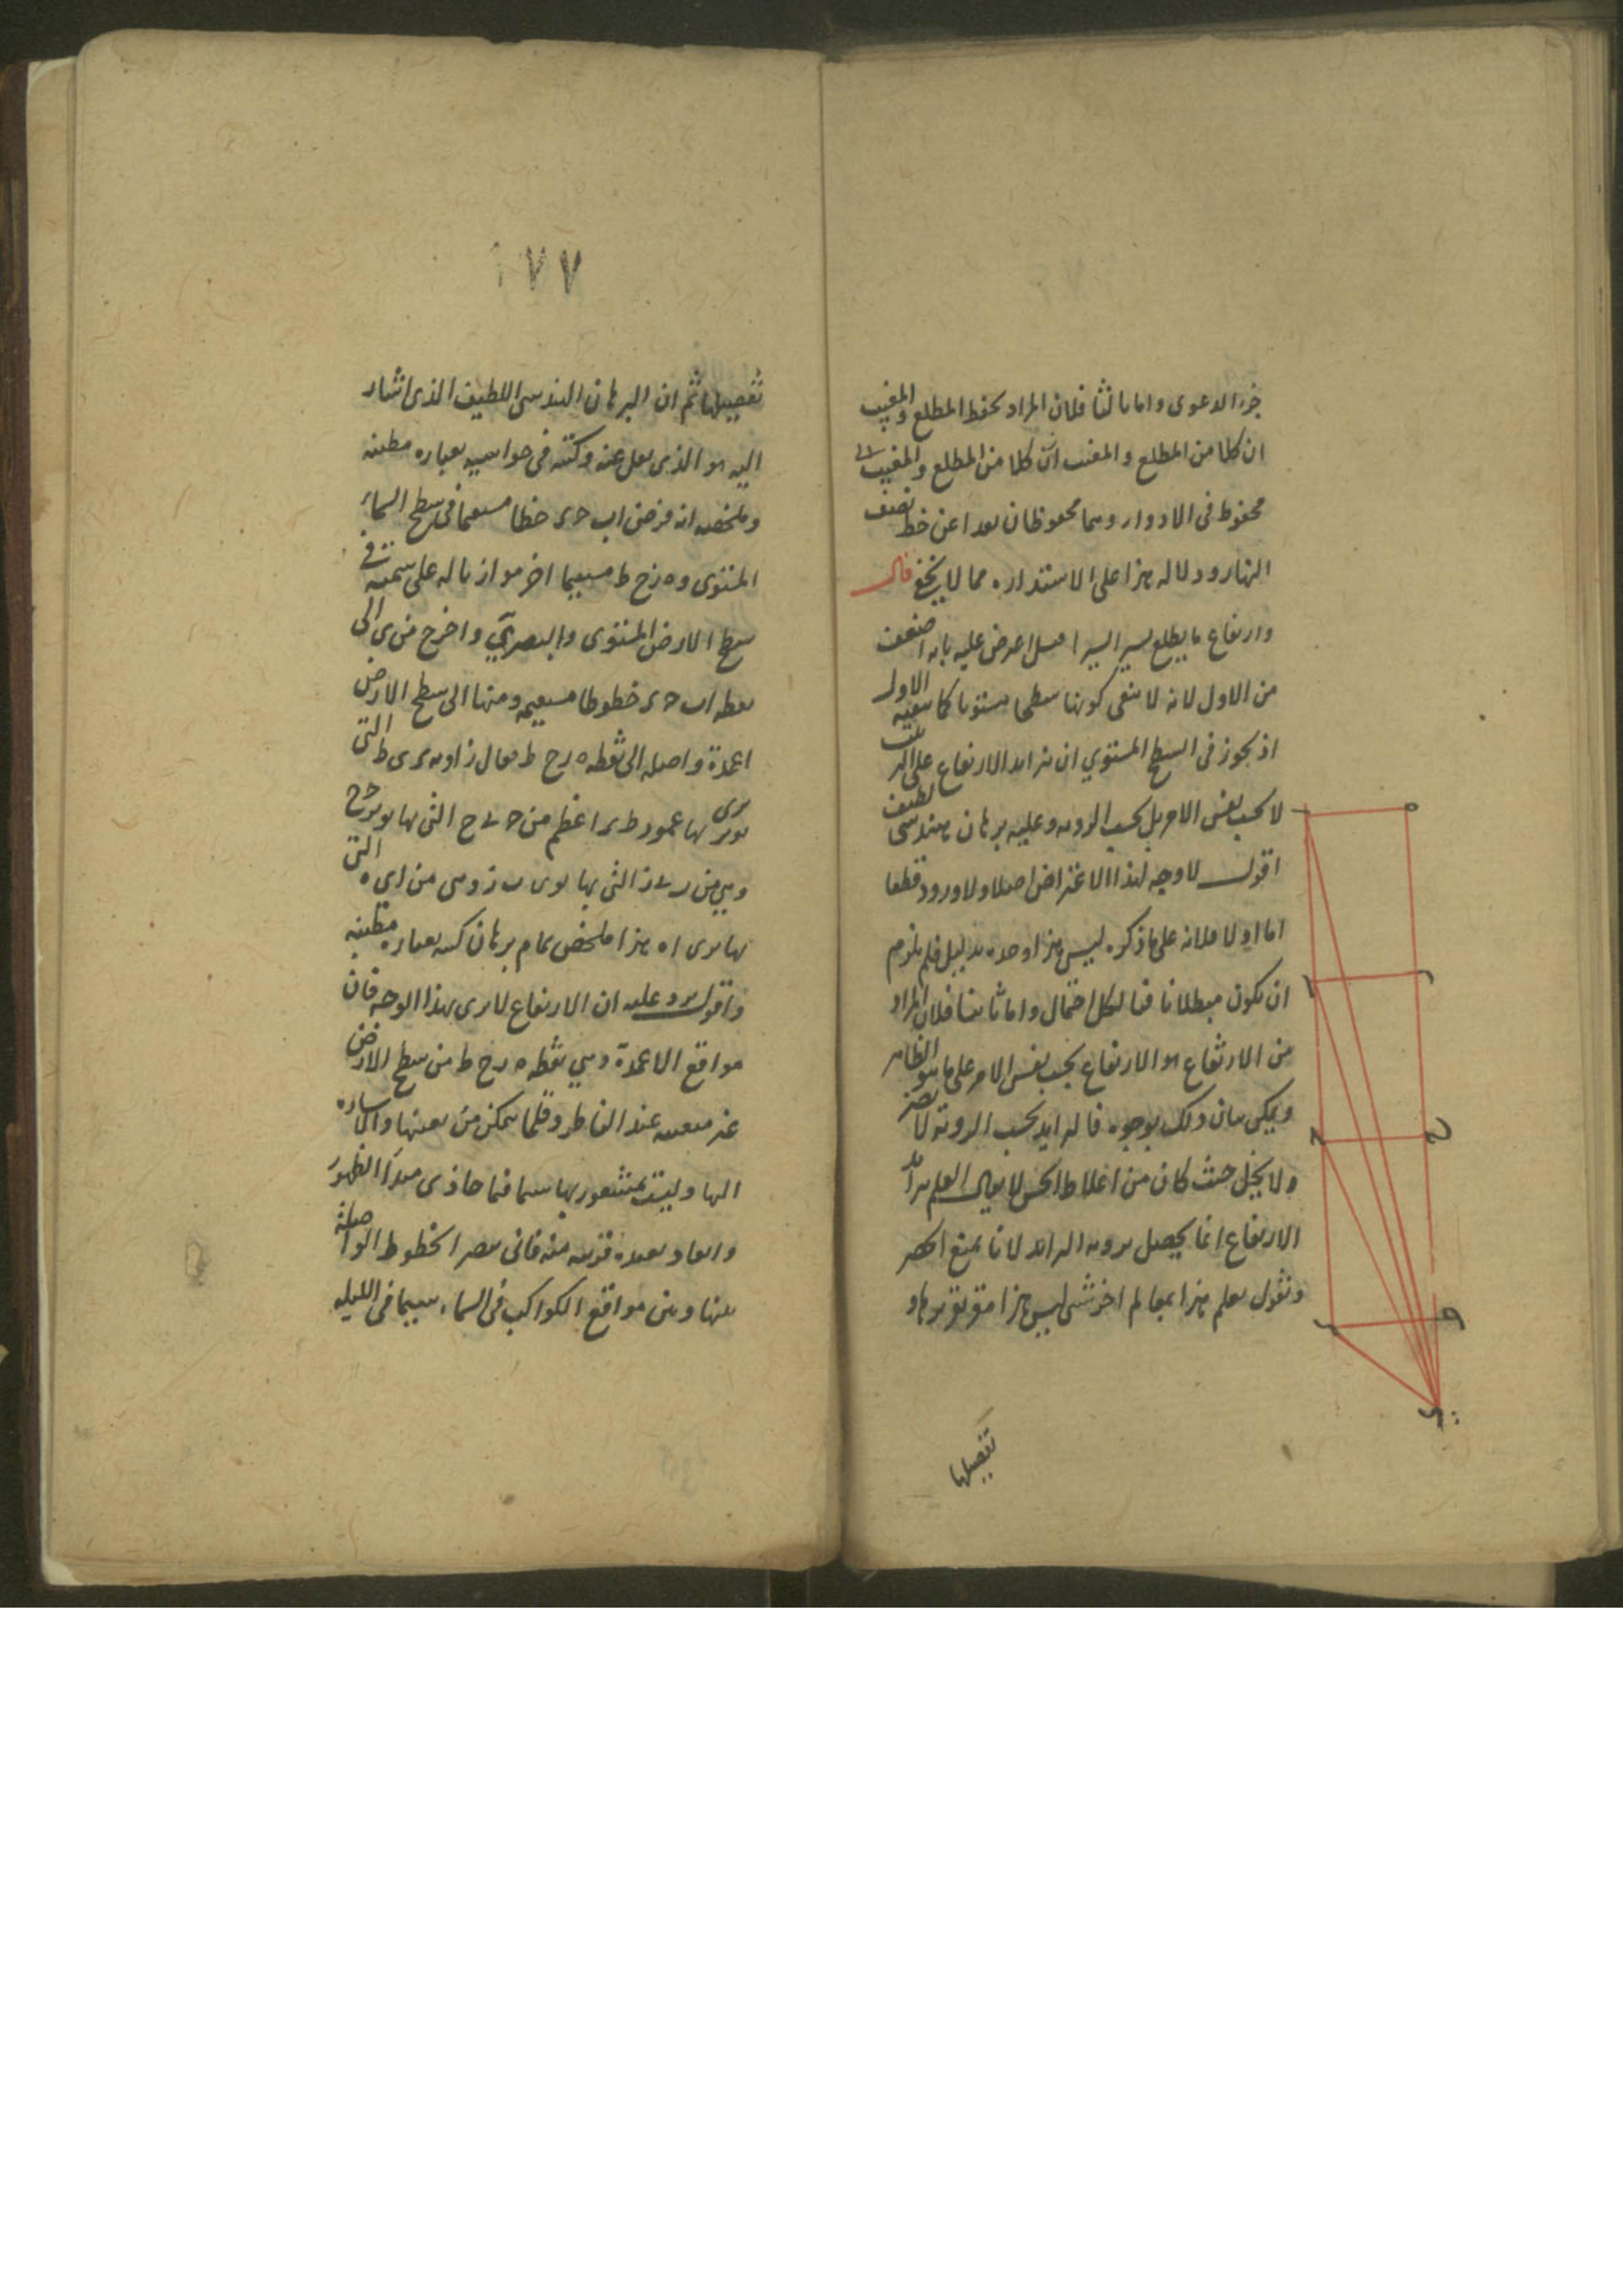 جزء الدعوى واما ثالثا فلان المراد بحفظ المطلع والمغيب
ان كلا من المطلع والمغيب ان كلا من المطلع والمغيب
محفوظ فى الادوار وهما محفوظان بعدا عن خط نصف
النهار ودلاله هذا على الاستداره مما لا يخفى قال
وارتفاع ما يطلع يسيرا يسيرا اعرض عليه بانه اضعف
من الاول لانه لا ينفى كونها سطحا مستويا كما ينفيه الاول
اذ يجوز فى السطح المستوي ان تزايد الارتفاع على
لا بحسب نفس الامر بل بحسب الرويه وعليه برهان هندسى لطيف
اقول لا وجه لهذا الاعتراض اصلا ولا ورود قطعا
اما اولا فلانه على ما ذكره ليس هذا وحده بدليل فلم يلزم
ان يكون مبطلا نافيا لكل احتمال واما ثانيا فلان المراد
من الارتفاع هو الارتفاع بحسب نفس الامر على ما هو الظاهر
ويمكن بيان ذلك بوجوه فالزايد بحسب الرويه لا يضر
ولا يخل حيث كان من اغلاط الحس لا يقال العلم بتزايد
الارتفاع انما يحصل برويه الزايد لانا نمنع الحصر
ونقول يعلم هذا بمعالم اخر شتى ليس هذا
تفصيلها
١٧٧
تفصيلها ثم ان البرهان الهندسى اللطيف الذى اشار
اليه هو الذى نقل عنه وكتبه فى حواشيه بعباره مطنبه
وملخصه انه فرض اب حء خطا مستقيما فى سطح السماء
المستوى وه زح ط مستقيما اخر موازيا له على سمته فى
سطح الارض المستوى والبصر ي واخرج من ى الى
نقطه اب حء خطوطا مستقيمه ومنها الى سطح الارض
اعمدة واصله الى نقطه ه زح ط فقال زاويه ء ى ط التى
يرى بها عمود ط ء اعظم من ح ى ح التى بها يرى حح
وهي من ب ى ز التى بها يرى ب ز وهى من اي ه التى
بها يرى اه هذا ملخص تمام برهان كتبه بعباره مطنبه
واقول يرد عليه ان الارتفاع لا يرى بهذا الوجه فان
مواقع الاعمدة وهي نقطه ه زح ط من سطح الارض
غير معينه عند الناظر وقلما يمكن من تعينها والاشاره
اليها وليست بمشعور بها سيما فيما حاذى مبدأ الظهور
وابعاد بعيده قريبه منه فانى يبصر الخطوط الواصله
بينها وبين مواقع الكواكب فى السماء سيما فى الليله